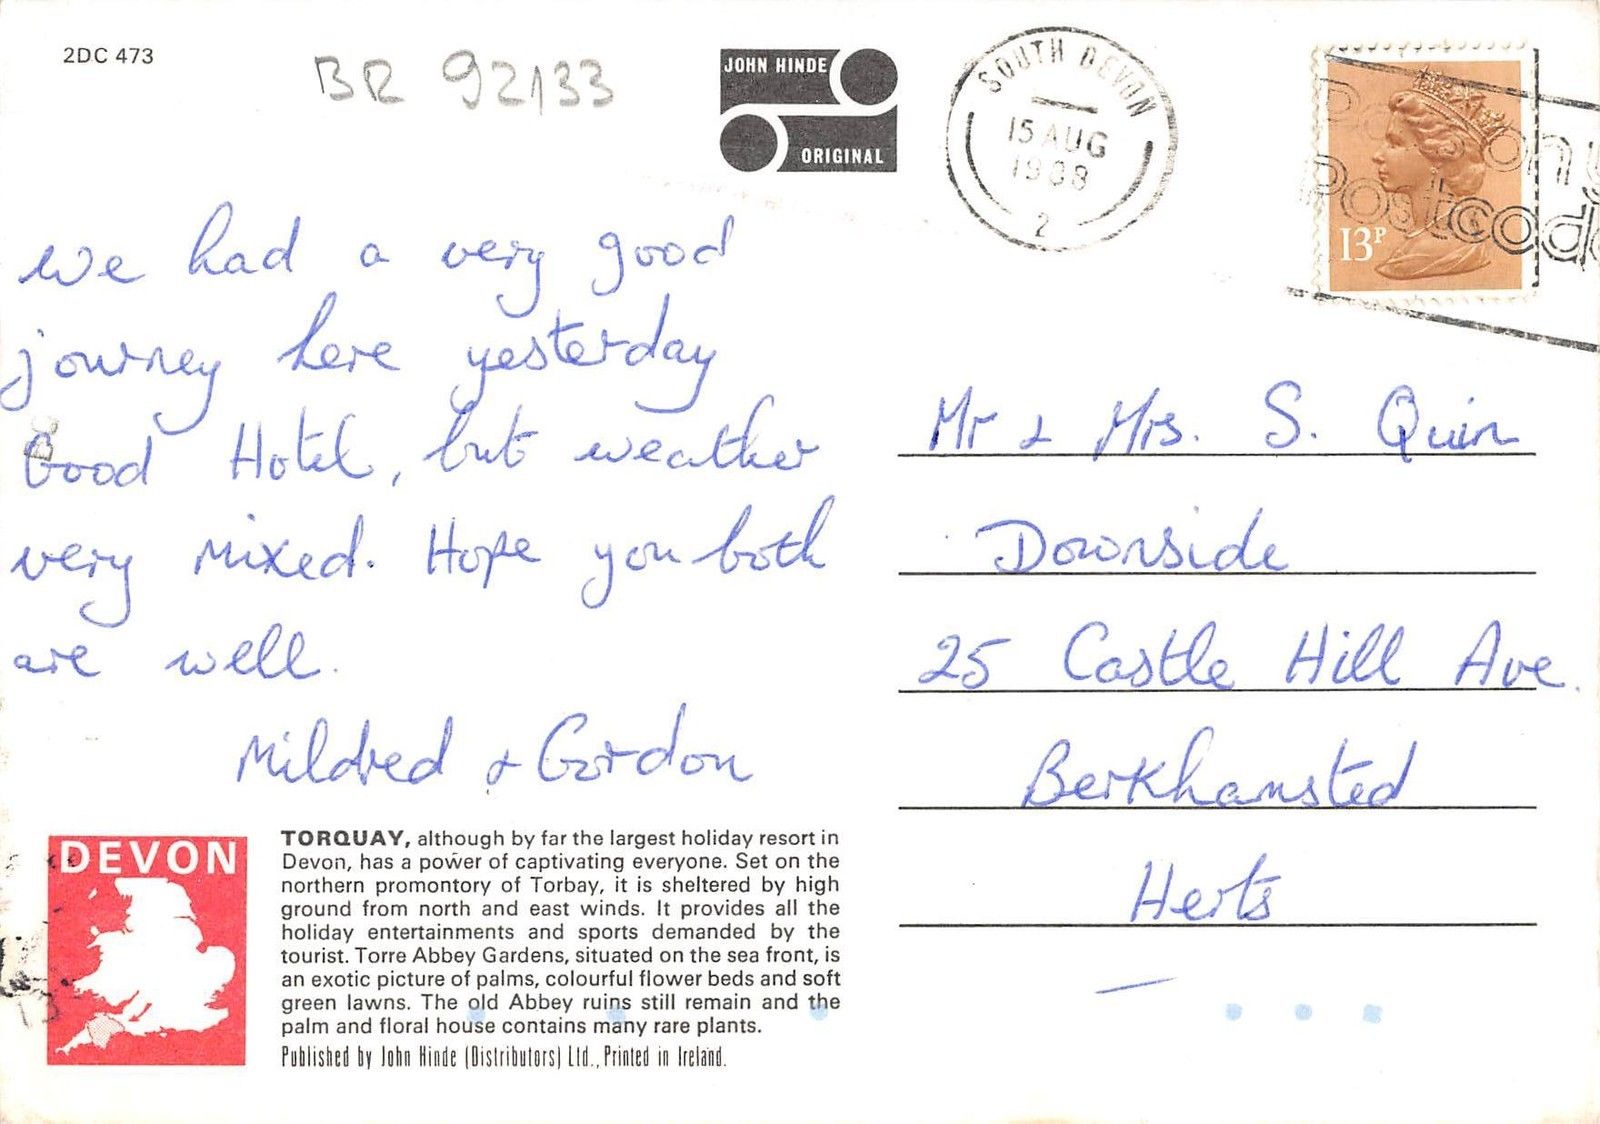 2DC 473
BR 92133
JOHN HINDE
ORIGINAL
SOUTH DEVON
15 AUG
1988
2
13P
Postcode
We had a very good
journey here yesterday
Good Hotel, but weather
very mixed. Hope you both
are well.
Mildred & Gordon
Mr & Mrs. S. Quin
Downside
25 Castle Hill Ave.
Berkhamsted
Herts
DEVON
TORQUAY, although by far the largest holiday resort in
Devon, has a power of captivating everyone. Set on the
northern promontory of Torbay, it is sheltered by high
ground from north and east winds. It provides all the
holiday entertainments and sports demanded by the
tourist. Torre Abbey Gardens, situated on the sea front, is
an exotic picture of palms, colourful flower beds and soft
green lawns. The old Abbey ruins still remain and the
palm and floral house contains many rare plants.
Published by John Hinde (Distributors) Ltd., Printed in Ireland.